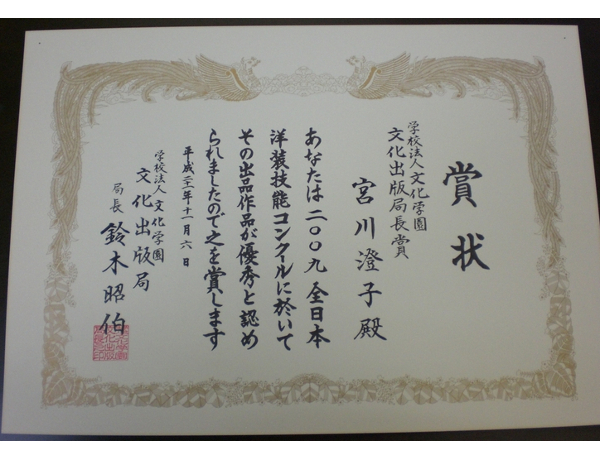 賞状
学校法人文化学園
文化出版局長賞
宮川澄子殿
あなたは二〇〇九全日本
洋装技能コンクールに於いて
その出品作品が優秀と認め
られましたので之を賞します
平成二十一年十一月六日
学校法人文化学園
文化出版局
局長 鈴木昭伯